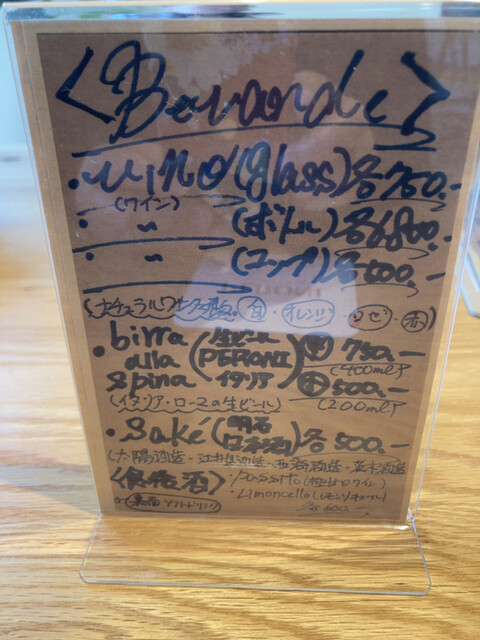 <Bevande>
・vino(glass)各750.-
(ワイン)
・ 〃 (ボトル)各6,800.-
・ 〃 (コップ)各600.-
(ナチュラルワイン 白・オレンジ・ロゼ・赤)
・birra (生ビール 大 750.-
alla PERONI (400ml)
spina イタリア) 中 500.-
(イタリア・ローマの生ビール) (200ml)
・saké(明石
日本酒)各500.-
(太陽酒造・江井ヶ嶋酒造・西海酒造・茨木酒造
<食後酒> ・Passito(極甘口ワイン)
・Limoncello(レモンリキュール)
裏面 ソフトドリンク 各600.-